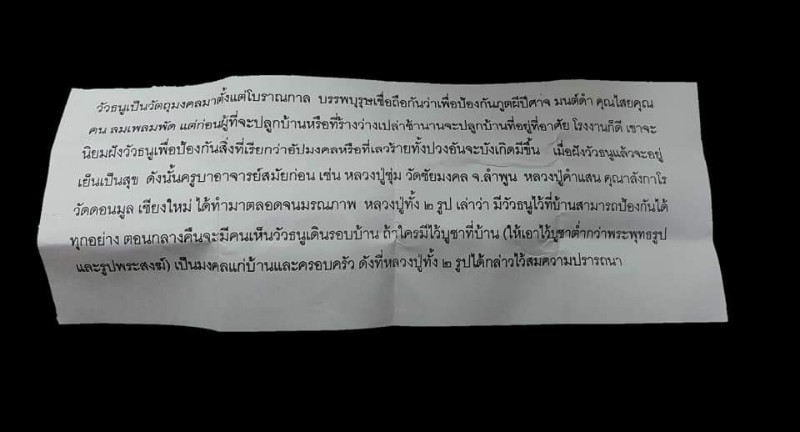 วัวธนูเป็นวัตถุมงคลมาตั้งแต่โบราณกาล บรรพบุรุษเชื่อถือกันว่าเพื่อป้องกันภูตผีปีศาจ มนต์ดำ คุณไสยคุณ
คน ลมเพลมพัด แต่ก่อนผู้ที่จะปลูกบ้านหรือที่ร้างว่างเปล่าช้านานจะปลูกบ้านที่อยู่ที่อาศัย โรงงานก็ดี เขาจะ
นิยมฝังวัวธนูเพื่อป้องกันสิ่งที่เรียกว่าอัปมงคลหรือที่เลวร้ายทั้งปวงอันจะบังเกิดมีขึ้น เมื่อฝังวัวธนูแล้วจะอยู่
เย็นเป็นสุข ดังนั้นครูบาอาจารย์สมัยก่อน เช่น หลวงปู่ชุ่ม วัดชัยมงคล จ.ลำพูน หลวงปู่คำแสน คุณาลังกาโร
วัดดอนมูล เชียงใหม่ ได้ทำมาตลอดจนมรณภาพ หลวงปู่ทั้ง ๒ รูป เล่าว่า มีวัวธนูไว้ที่บ้านสามารถป้องกันได้
ทุกอย่าง ตอนกลางคืนจะมีคนเห็นวัวธนูเดินรอบบ้าน ถ้าใครมีไว้บูชาที่บ้าน (ให้เอาไว้บูชาต่ำกว่าพระพุทธรูป
และรูปพระสงฆ์) เป็นมงคลแก่บ้านและครอบครัว ดังที่หลวงปู่ทั้ง ๒ รูปได้กล่าวไว้สมความปรารถนา